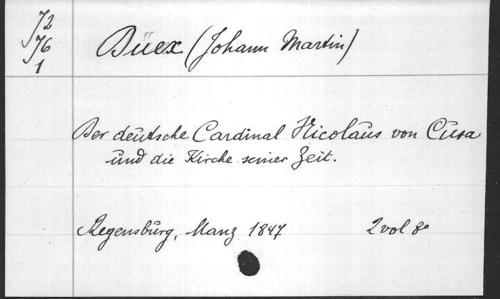 72
76
1
Düex (Johann Martin)
Der deutsche Cardinal Nicolaus von Cusa
und die Kirche seiner Zeit.
Regensburg, Manz 1847 2 vol 8°